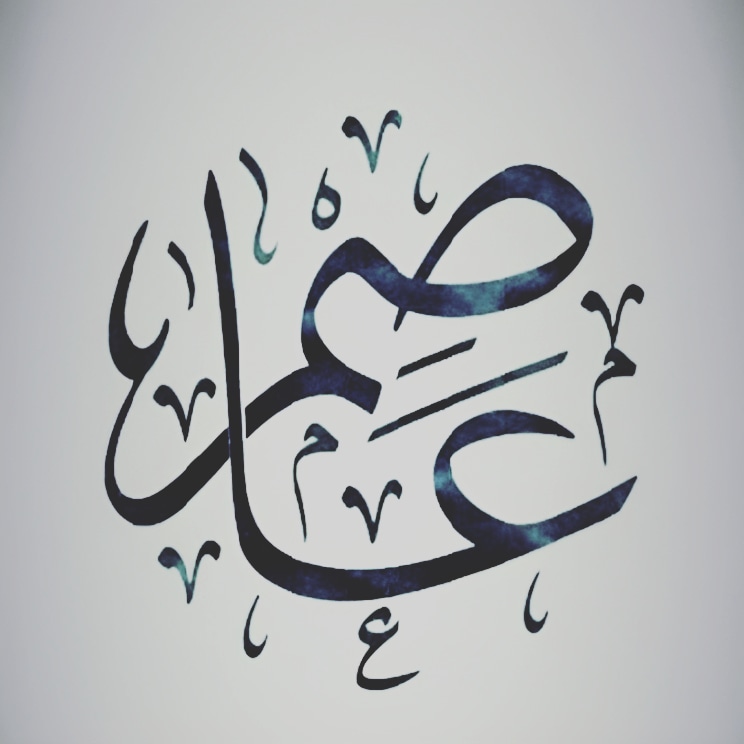 عاصم